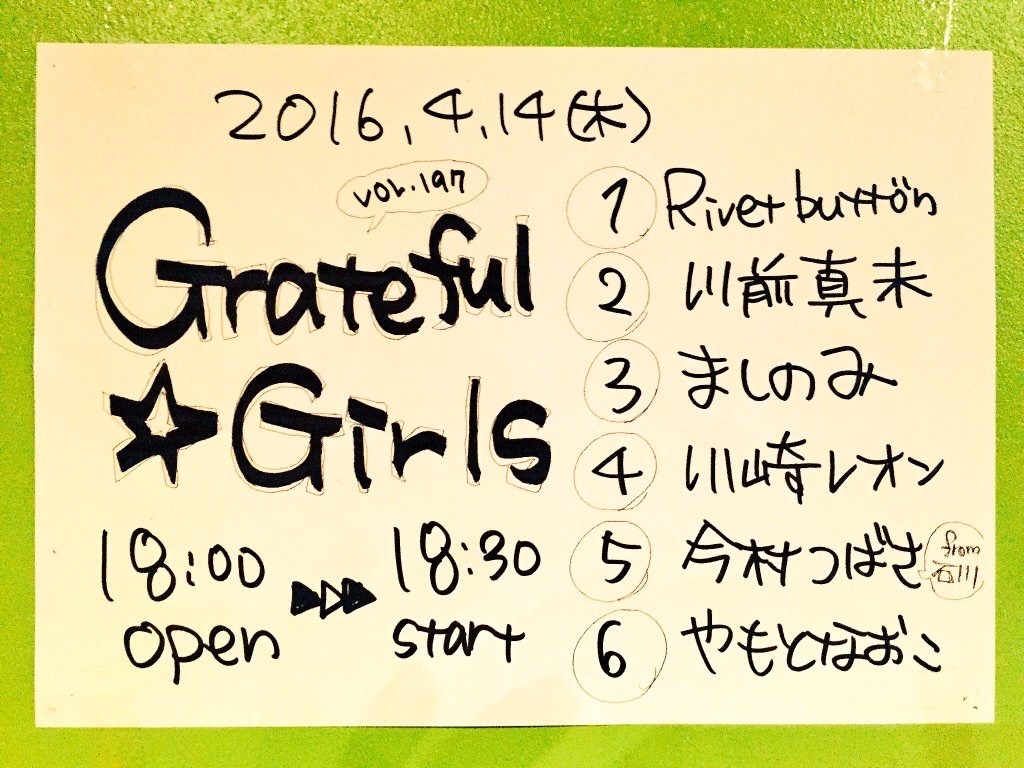 2016.4.14(木)
vol.197
Grateful
☆Girls
18:00 ▶▷▶ 18:30
open start
① Rivet button
② 川前真未
③ ましのみ
④ 川崎レオン
⑤ 今村つばさ from 石川
⑥ やもとなおこ